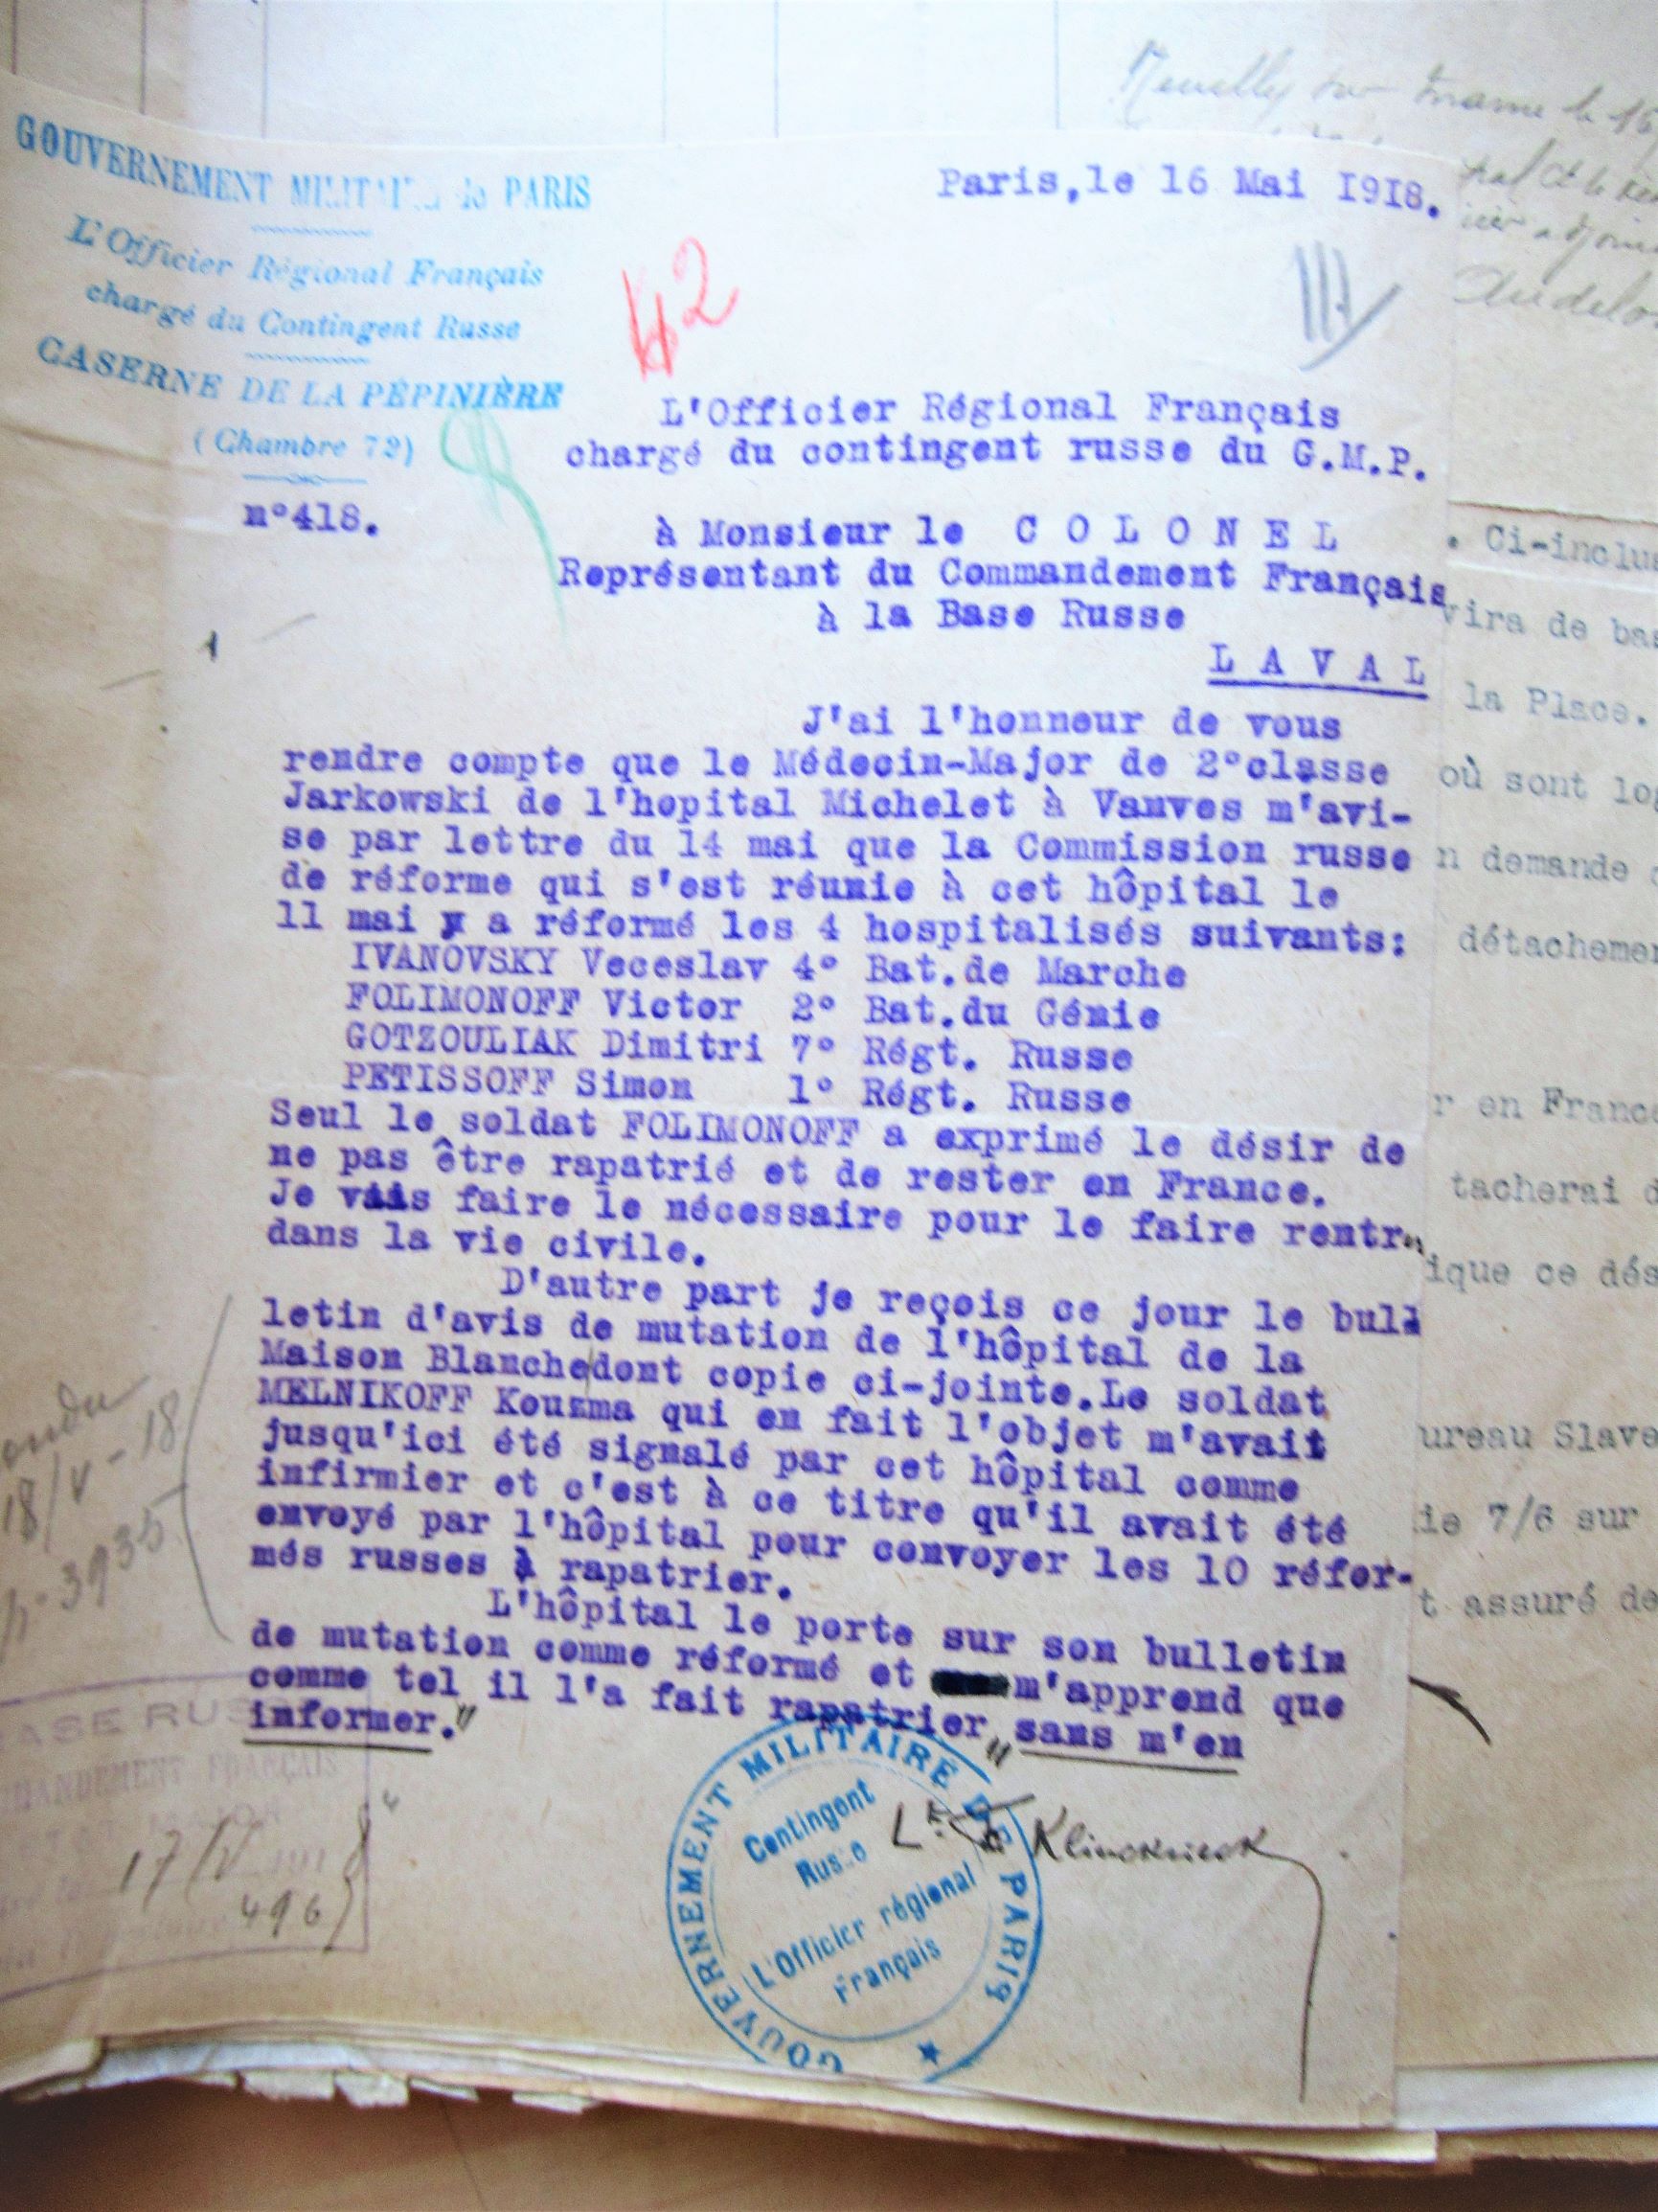 GOUVERNEMENT MILITAIRE de PARIS
L'Officier Régional Français
chargé du Contingent Russe
CASERNE DE LA PÉPINIÈRE
(Chambre 72)
n°418.
Paris,le 16 Mai 1918.
42
L'Officier Régional Français
chargé du contingent russe du G.M.P.
à Monsieur le C O L O N E L
Représentant du Commandement Français
à la Base Russe
L A V A L
J'ai l'honneur de vous
rendre compte que le Médecin-Major de 2°classe
Jarkowski de l'hopital Michelet à Vanves m'avi-
se par lettre du 14 mai que la Commission russe
de réforme qui s'est réunie à cet hôpital le
11 mai y a réformé les 4 hospitalisés suivants:
IVANOVSKY Veceslav 4° Bat.de Marche
FOLIMONOFF Victor 2° Bat.du Génie
GOTZOULIAK Dimitri 7° Régt. Russe
PETISSOFF Simon 1° Régt. Russe
Seul le soldat FOLIMONOFF a exprimé le désir de
ne pas être rapatrié et de rester en France.
Je vais faire le nécessaire pour le faire rentr
dans la vie civile.
D'autre part je reçois ce jour le bul
letin d'avis de mutation de l'hôpital de la
Maison Blanchedont copie ci-jointe.Le soldat
MELNIKOFF Kouzma qui en fait l'objet m'avait
jusqu'ici été signalé par cet hôpital comme
infirmier et c'est à ce titre qu'il avait été
envoyé par l'hôpital pour convoyer les 10 réfor-
més russes à rapatrier.
L'hôpital le porte sur son bulletin
de mutation comme réformé et m'apprend que
comme tel il l'a fait rapatrier "sans m'en
informer."
18/V-18
3935
BASE RUS
MANDEMENT FRANÇAIS
17/V 191 8
496
GOUVERNEMENT MILITAIRE DE PARIS
Contingent
Russe
L'Officier régional
Français
Lt Klinckwieck
Neuilly sur Marne le 16
. Ci-inclus
vira de bas
la Place.
où sont log
n demande
détachemen
r en France
tacherai d
ique ce dés
ureau Slave
ie 7/6 sur
t assuré de